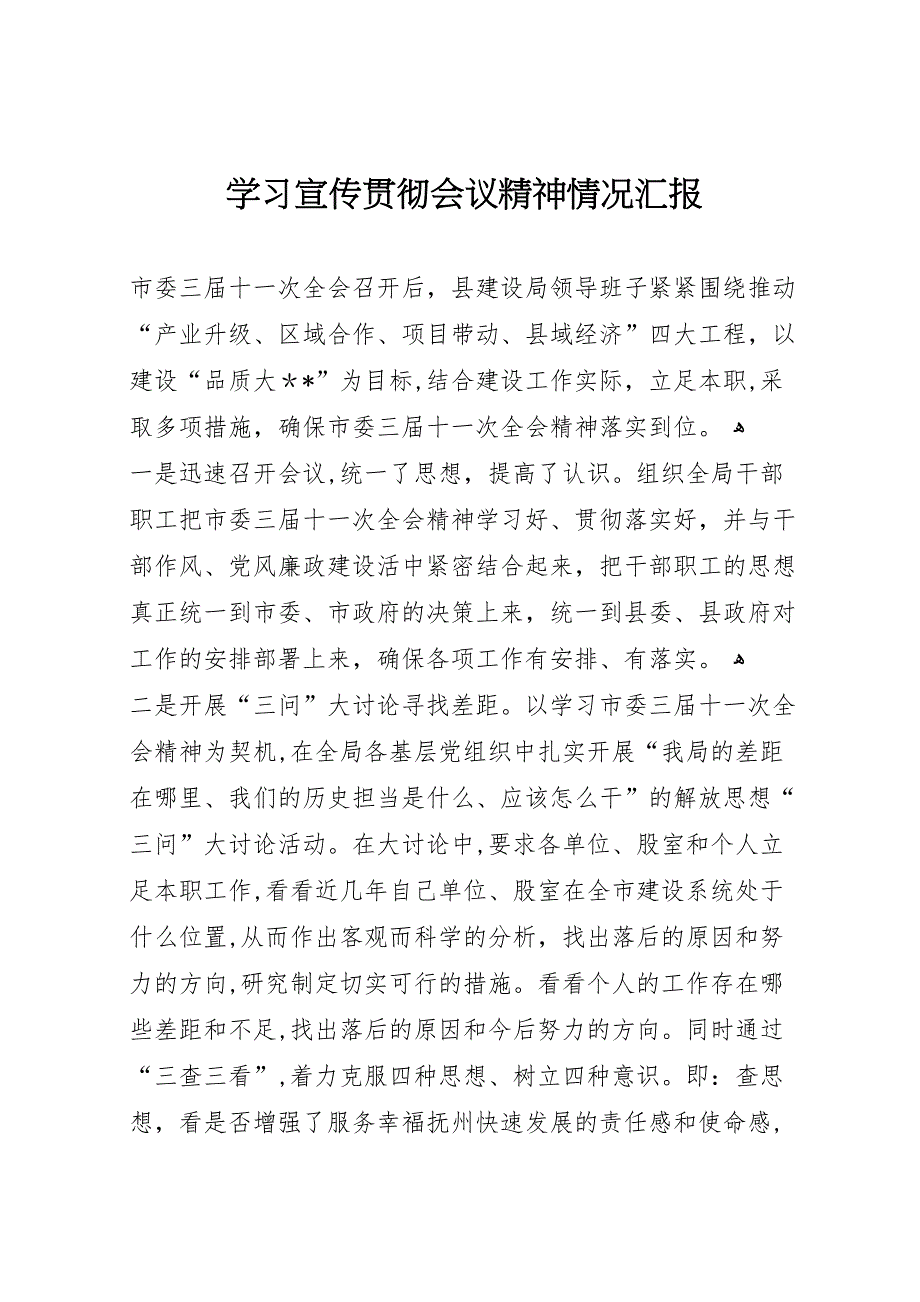 学习宣传贯彻会议精神情况汇报
市委三届十一次全会召开后，县建设局领导班子紧紧围绕推动
“产业升级、区域合作、项目带动、县域经济”四大工程，以
建设“品质大＊*”为目标,结合建设工作实际，立足本职,采
取多项措施，确保市委三届十一次全会精神落实到位。ﻫ
一是迅速召开会议,统一了思想，提高了认识。组织全局干部
职工把市委三届十一次全会精神学习好、贯彻落实好，并与干
部作风、党风廉政建设活中紧密结合起来，把干部职工的思想
真正统一到市委、市政府的决策上来，统一到县委、县政府对
工作的安排部署上来，确保各项工作有安排、有落实。ﻫ
二是开展“三问”大讨论寻找差距。以学习市委三届十一次全
会精神为契机,在全局各基层党组织中扎实开展“我局的差距
在哪里、我们的历史担当是什么、应该怎么干”的解放思想“
三问”大讨论活动。在大讨论中,要求各单位、股室和个人立
足本职工作,看看近几年自己单位、股室在全市建设系统处于
什么位置,从而作出客观而科学的分析，找出落后的原因和努
力的方向,研究制定切实可行的措施。看看个人的工作存在哪
些差距和不足,找出落后的原因和今后努力的方向。同时通过
“三查三看”,着力克服四种思想、树立四种意识。即：查思
想，看是否增强了服务幸福抚州快速发展的责任感和使命感,